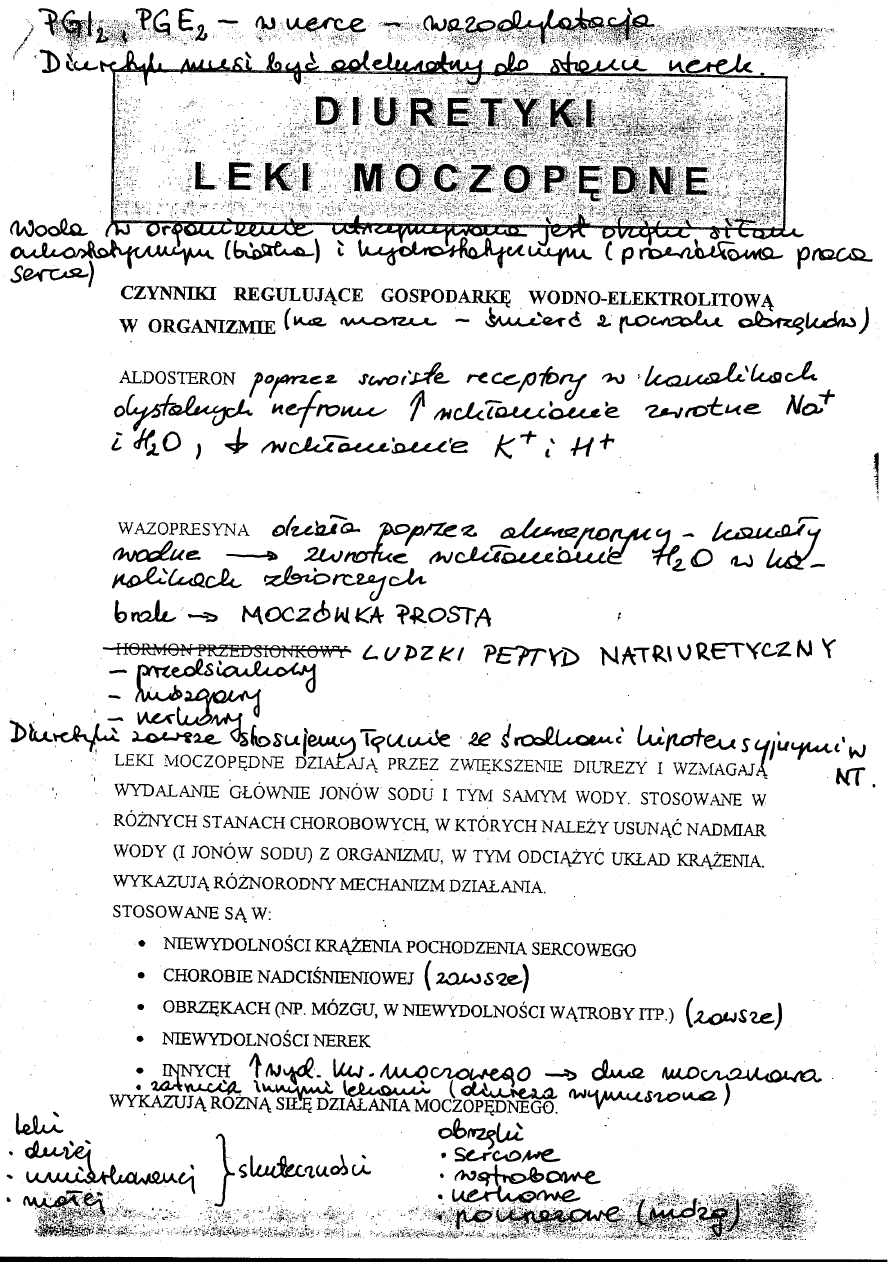 PGI₂, PGE₂ – w nerce – wazodylatacja
Diuretyk musi być adekwatny do stanu nerek.
DIURETYKI
LEKI MOCZOPĘDNE
Woda w organizmie utrzymywana jest dzięki siłom
onkostatycznym (białka) i hydrostatycznym (prawidłowa praca
serca)
CZYNNIKI REGULUJĄCE GOSPODARKĘ WODNO-ELEKTROLITOWĄ
W ORGANIZMIE (na morzu – śmierć z powodu obrzęków)
ALDOSTERON poprzez swoiste receptory w kanalikach
dystalnych nefronu ↑ wchłanianie zwrotne Na⁺
i H₂O, ↓ wchłanianie K⁺ i H⁺
WAZOPRESYNA działa poprzez akwaporyny – kanały
wodne → zwrotne wchłanianie H₂O w ka-
nalikach zbiorczych
brak → MOCZÓWKA PROSTA
HORMON PRZEDSIONKOWY LUDZKI PEPTYD NATRIURETYCZNY
– przedsionkowy
– mózgowy
– nerkowy
Diuretyki zawsze stosujemy łącznie ze środkami hipotensyjnymi w
NT.
LEKI MOCZOPĘDNE DZIAŁAJĄ PRZEZ ZWIĘKSZENIE DIUREZY I WZMAGAJĄ
WYDALANIE GŁÓWNIE JONÓW SODU I TYM SAMYM WODY. STOSOWANE W
RÓŻNYCH STANACH CHOROBOWYCH, W KTÓRYCH NALEŻY USUNĄĆ NADMIAR
WODY (I JONÓW SODU) Z ORGANIZMU, W TYM ODCIĄŻYĆ UKŁAD KRĄŻENIA.
WYKAZUJĄ RÓŻNORODNY MECHANIZM DZIAŁANIA.
STOSOWANE SĄ W:
• NIEWYDOLNOŚCI KRĄŻENIA POCHODZENIA SERCOWEGO
• CHOROBIE NADCIŚNIENIOWEJ (zawsze)
• OBRZĘKACH (NP. MÓZGU, W NIEWYDOLNOŚCI WĄTROBY ITP.) (zawsze)
• NIEWYDOLNOŚCI NEREK
• INNYCH ↑ wyd. kw. moczowego → dna moczanowa
• zatrucia innymi lekami (diureza wymuszona)
WYKAZUJĄ RÓŻNĄ SIŁĘ DZIAŁANIA MOCZOPĘDNEGO.
leki
• dużej
• umiarkowanej } skuteczności
• małej
obrzęki
• sercowe
• wątrobowe
• nerkowe
• pourazowe (mózg)